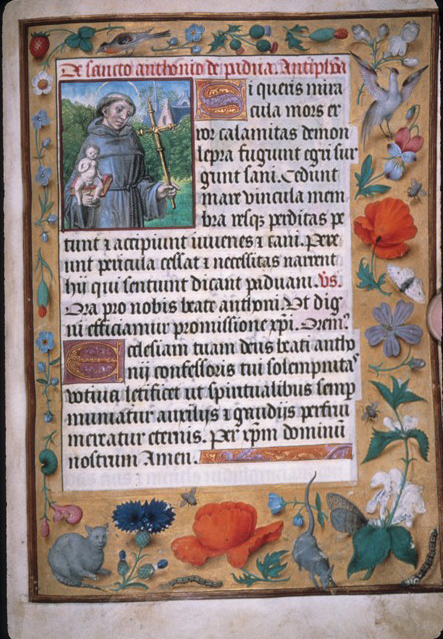 De sancto anthonio de padua. Antiphõa
Si queris mira
cula mors er
ror calamitas demon
lepra fugiunt egri sur
gunt sani. Cedunt
mare vincula mem
bra resqz perditas pe
tunt ⁊ accipiunt iuvenes ⁊ cani. Pere
unt pericula cessat ⁊ necessitas narrent
hij qui sentiunt dicant paduani. vs.
Ora pro nobis beate anthoni Ut dig
ni efficiamur promissione xpi. Orem⁹
Ecclesiam tuam deus beati antho
nij confessoris tui solempnitas
votiva letificet ut spiritualibus semp
muniatur auxilijs ⁊ gaudijs perfrui
mereatur eternis. Per xpm dominū
nostrum Amen.